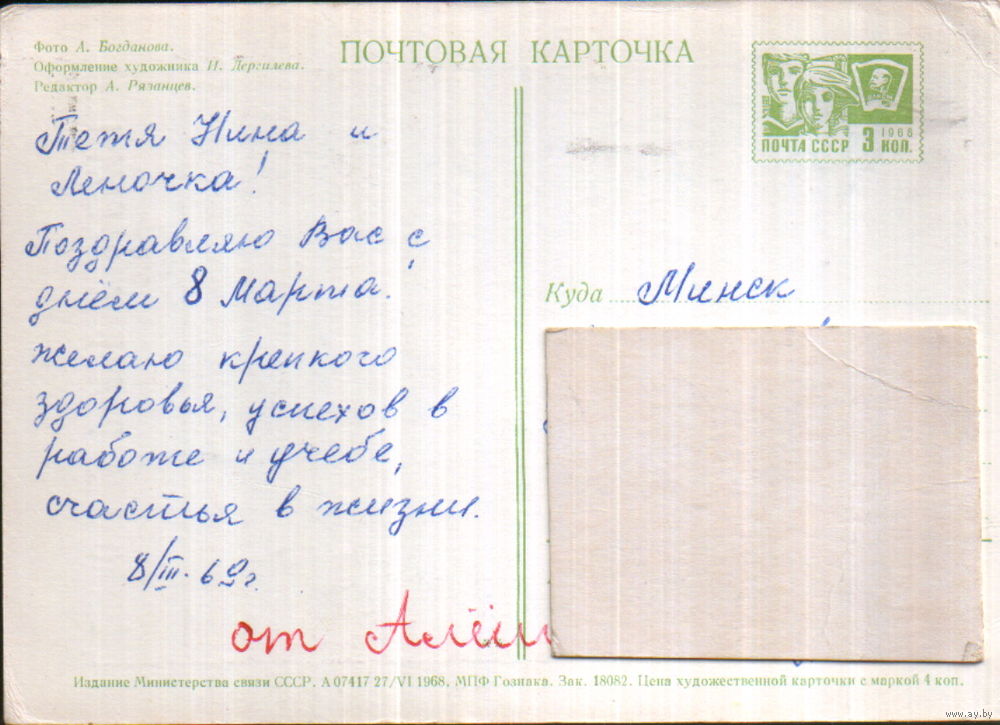 Фото А. Богданова.
Оформление художника И. Дергилева.
Редактор А. Рязанцев.
ПОЧТОВАЯ КАРТОЧКА
1968
ПОЧТА СССР 3 КОП.
Тетя Нина и
Леночка!
Поздравляю Вас с
днём 8 Марта!
желаю крепкого
здоровья, успехов в
работе и учебе,
счастья в жизни.
8/III-69г.
от
Куда Минск
Издание Министерства связи СССР. А 07417 27/VI 1968, МПФ Гознака. Зак. 18082. Цена художественной карточки с маркой 4 коп.
www.ay.by